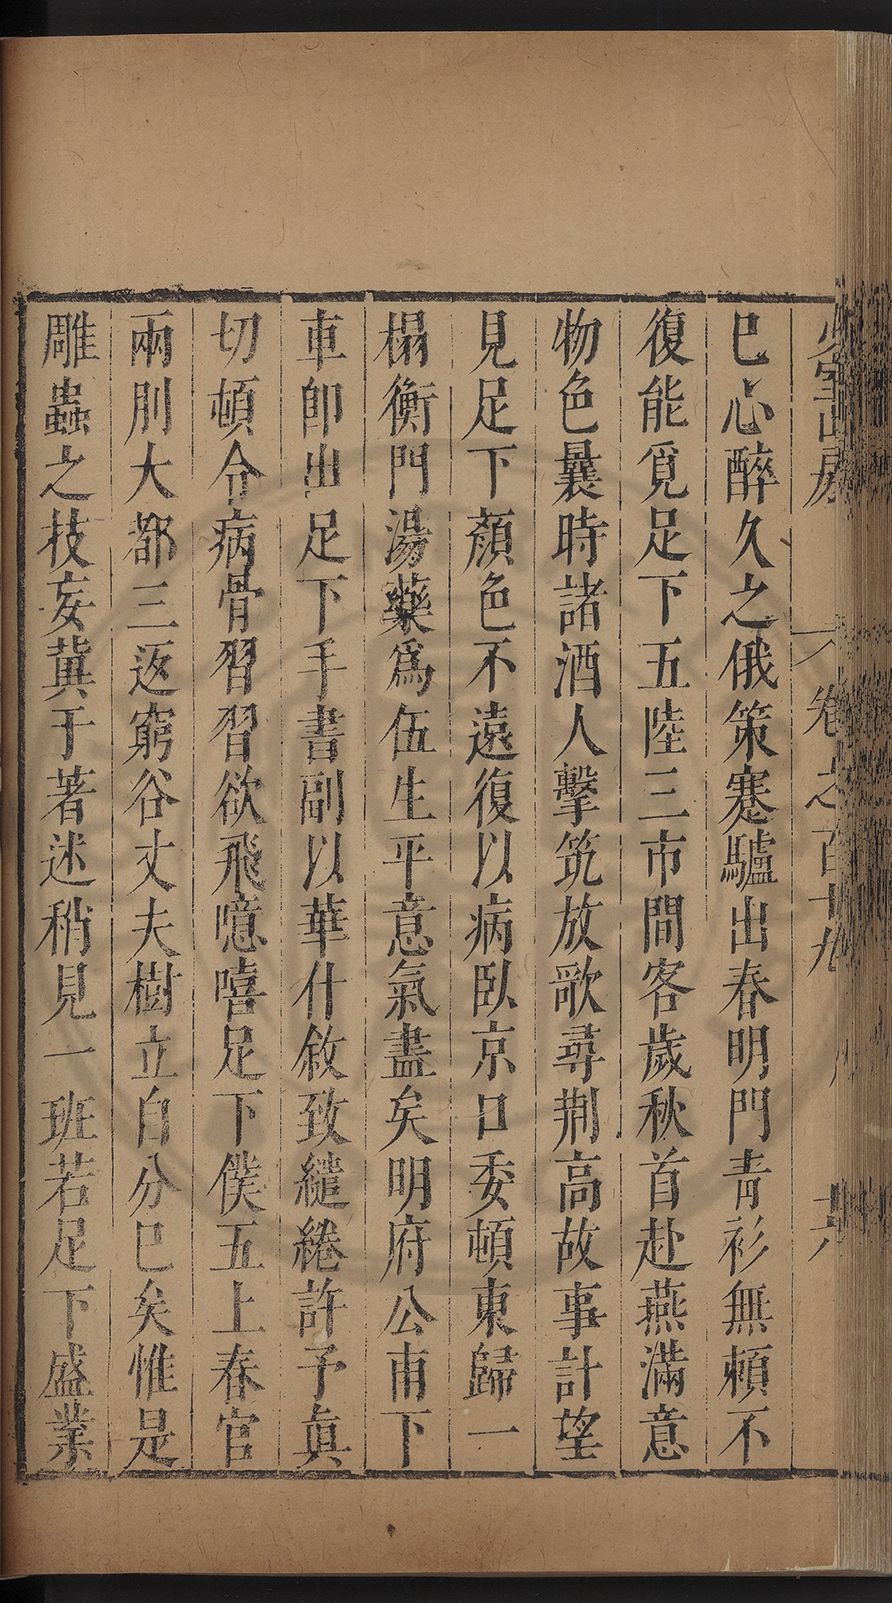 少室山房　卷之百十九　共
巳心醉久之俄策蹇驢出春明門青衫無賴不
復能覓足下五陸三市間客歲秋首赴燕滿意
物色曩時諸酒人擊筑放歌尋荆高故事計望
見足下顏色不遠復以病臥京口委頓東歸一
榻衡門湯藥爲伍生平意氣盡矣明府公甫下
車卽出足下手書副以華什敘致繾綣許予眞
切頓令病骨習習欲飛噫嘻足下僕五上春官
兩刖大都三返窮谷丈夫樹立自分巳矣惟是
雕蟲之技妄冀于著述稍見一班若足下盛業